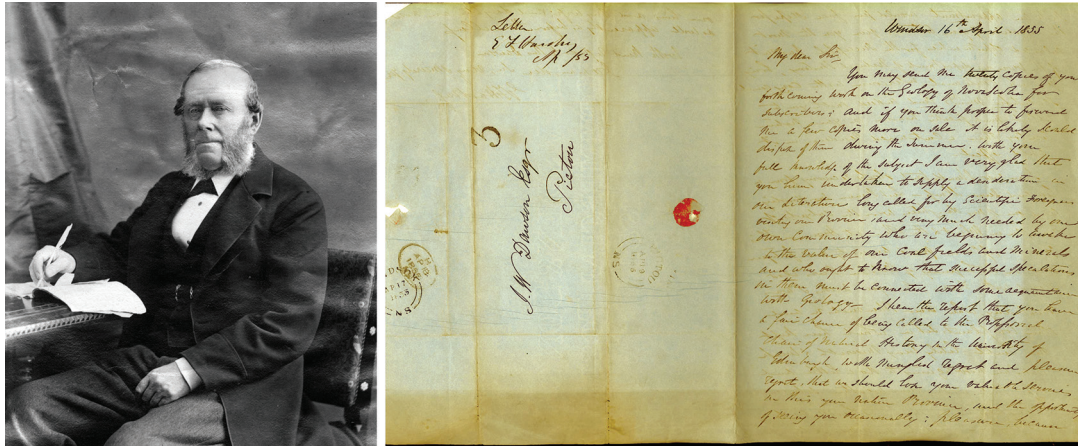 Letter
Ap /55
3
J.W. Dawson Esqr
Pictou
Windsor 16th April 1855
My dear Sir,
You may send me twenty copies of your
forthcoming work on the Geology of Novascotia for
subscribers; and if you think proper to forward
me a few copies more on sale it is likely I should
dispose of them during the summer. With your
full knowledge of the subject I am very glad that
you have undertaken to supply a desideratum in
our literature long called for by Scientific Foreigners
visiting our Province, and very much needed by our
own Community who are beginning to awake
to the value of our Coal fields and Minerals
and who ought to know that successful speculations
in them must be connected with some acquaintance
with Geology — I hear the report that you have
a fair chance of being called to the Professorial
Chair of Natural History in the University of
Edinburgh, with mingled regret and pleasure
regret, that we should lose your valuable services
in this your native Province, and the opportunity
of seeing you occasionally; pleasure, because